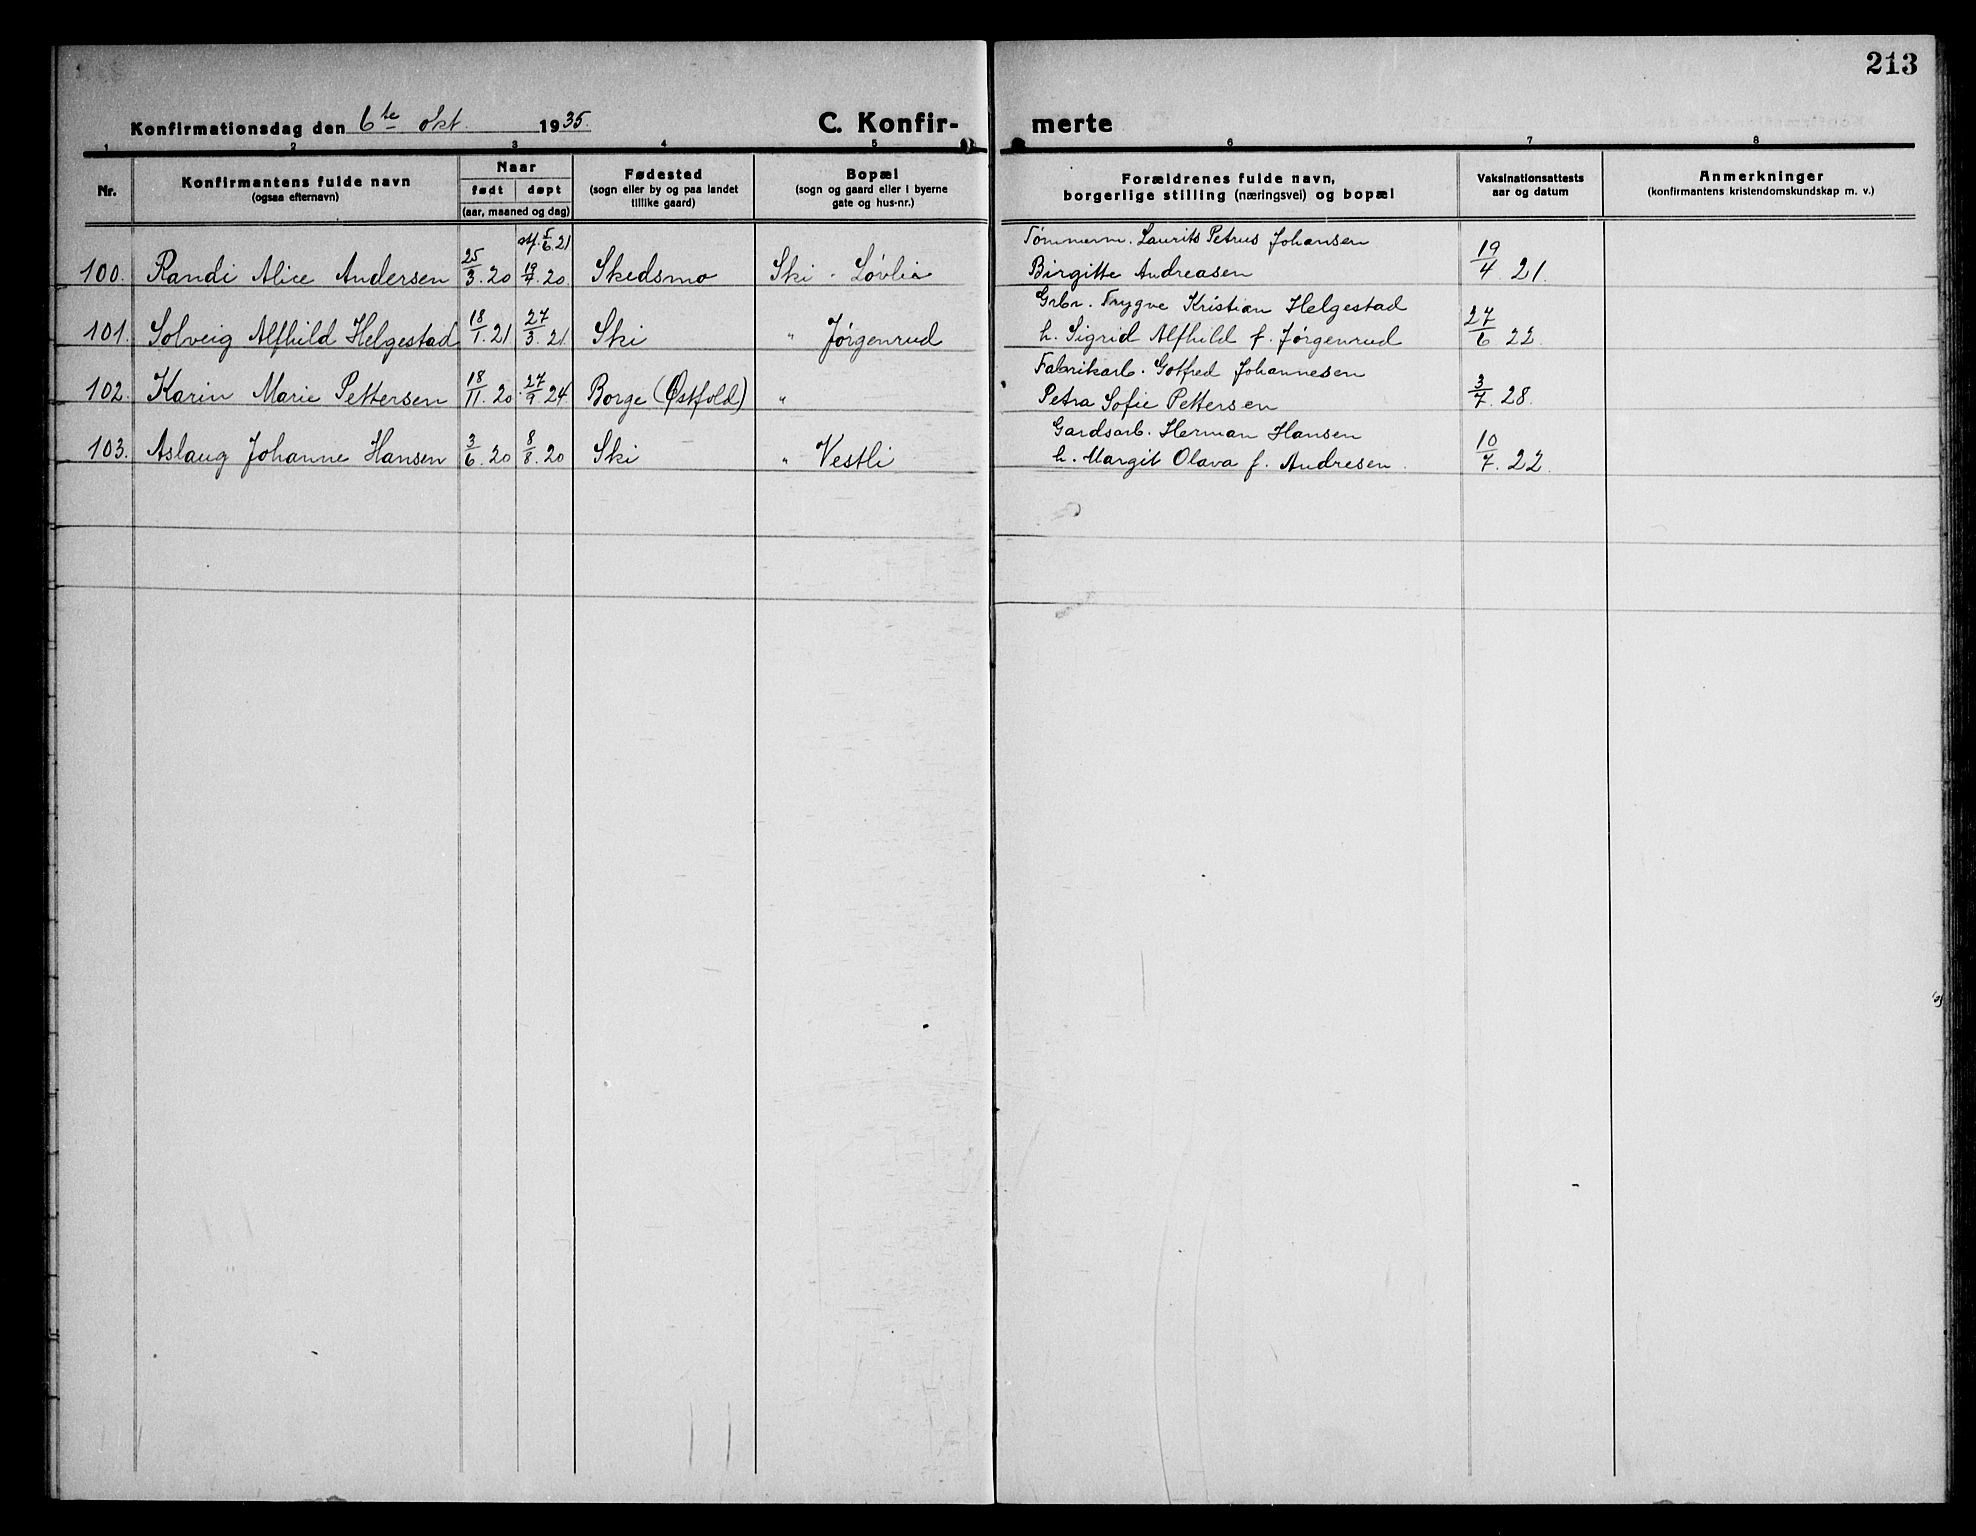 213
Konfirmationsdag den 6te okt. 1935. C. Konfir- merte
1 2 3 4 5 6 7 8
Nr. Konfirmantens fulde navn (ogsaa efternavn) Naar født døpt (aar, maaned og dag) Fødested (sogn eller by og paa landet tillike gaard) Bopæl (sogn og gaard eller i byerne gate og hus-nr.) Forældrenes fulde navn, borgerlige stilling (næringsvei) og bopæl Vaksinationsattests aar og datum Anmerkninger (konfirmantens kristendomskundskap m. v.)
stf. 5/6 21 Tømmerm. Laurits Petrus Johansen
100. Randi Alice Andersen 25/3. 20 19/7. 20 Skedsmo Ski - Løvlia Birgitte Andreasen 19/4. 21.
Grbr. Trygve Kristian Helgestad
101. Solveig Alfhild Helgestad 18/1. 21 27/3. 21 Ski " Jørgenrud h. Sigrid Alfhild f. Jørgenrud 27/6 22.
Fabrikarb. Gotfred Johannesen
102. Karin Marie Pettersen 18/11. 20 27/9 24 Borge (Østfold) " Petra Sofie Pettersen 3/7. 28.
Gardsarb. Herman Hansen
103. Aslaug Johanne Hansen 3/6. 20 8/8. 20 Ski " Vestli h. Margit Olava f. Andresen. 10/7. 22.